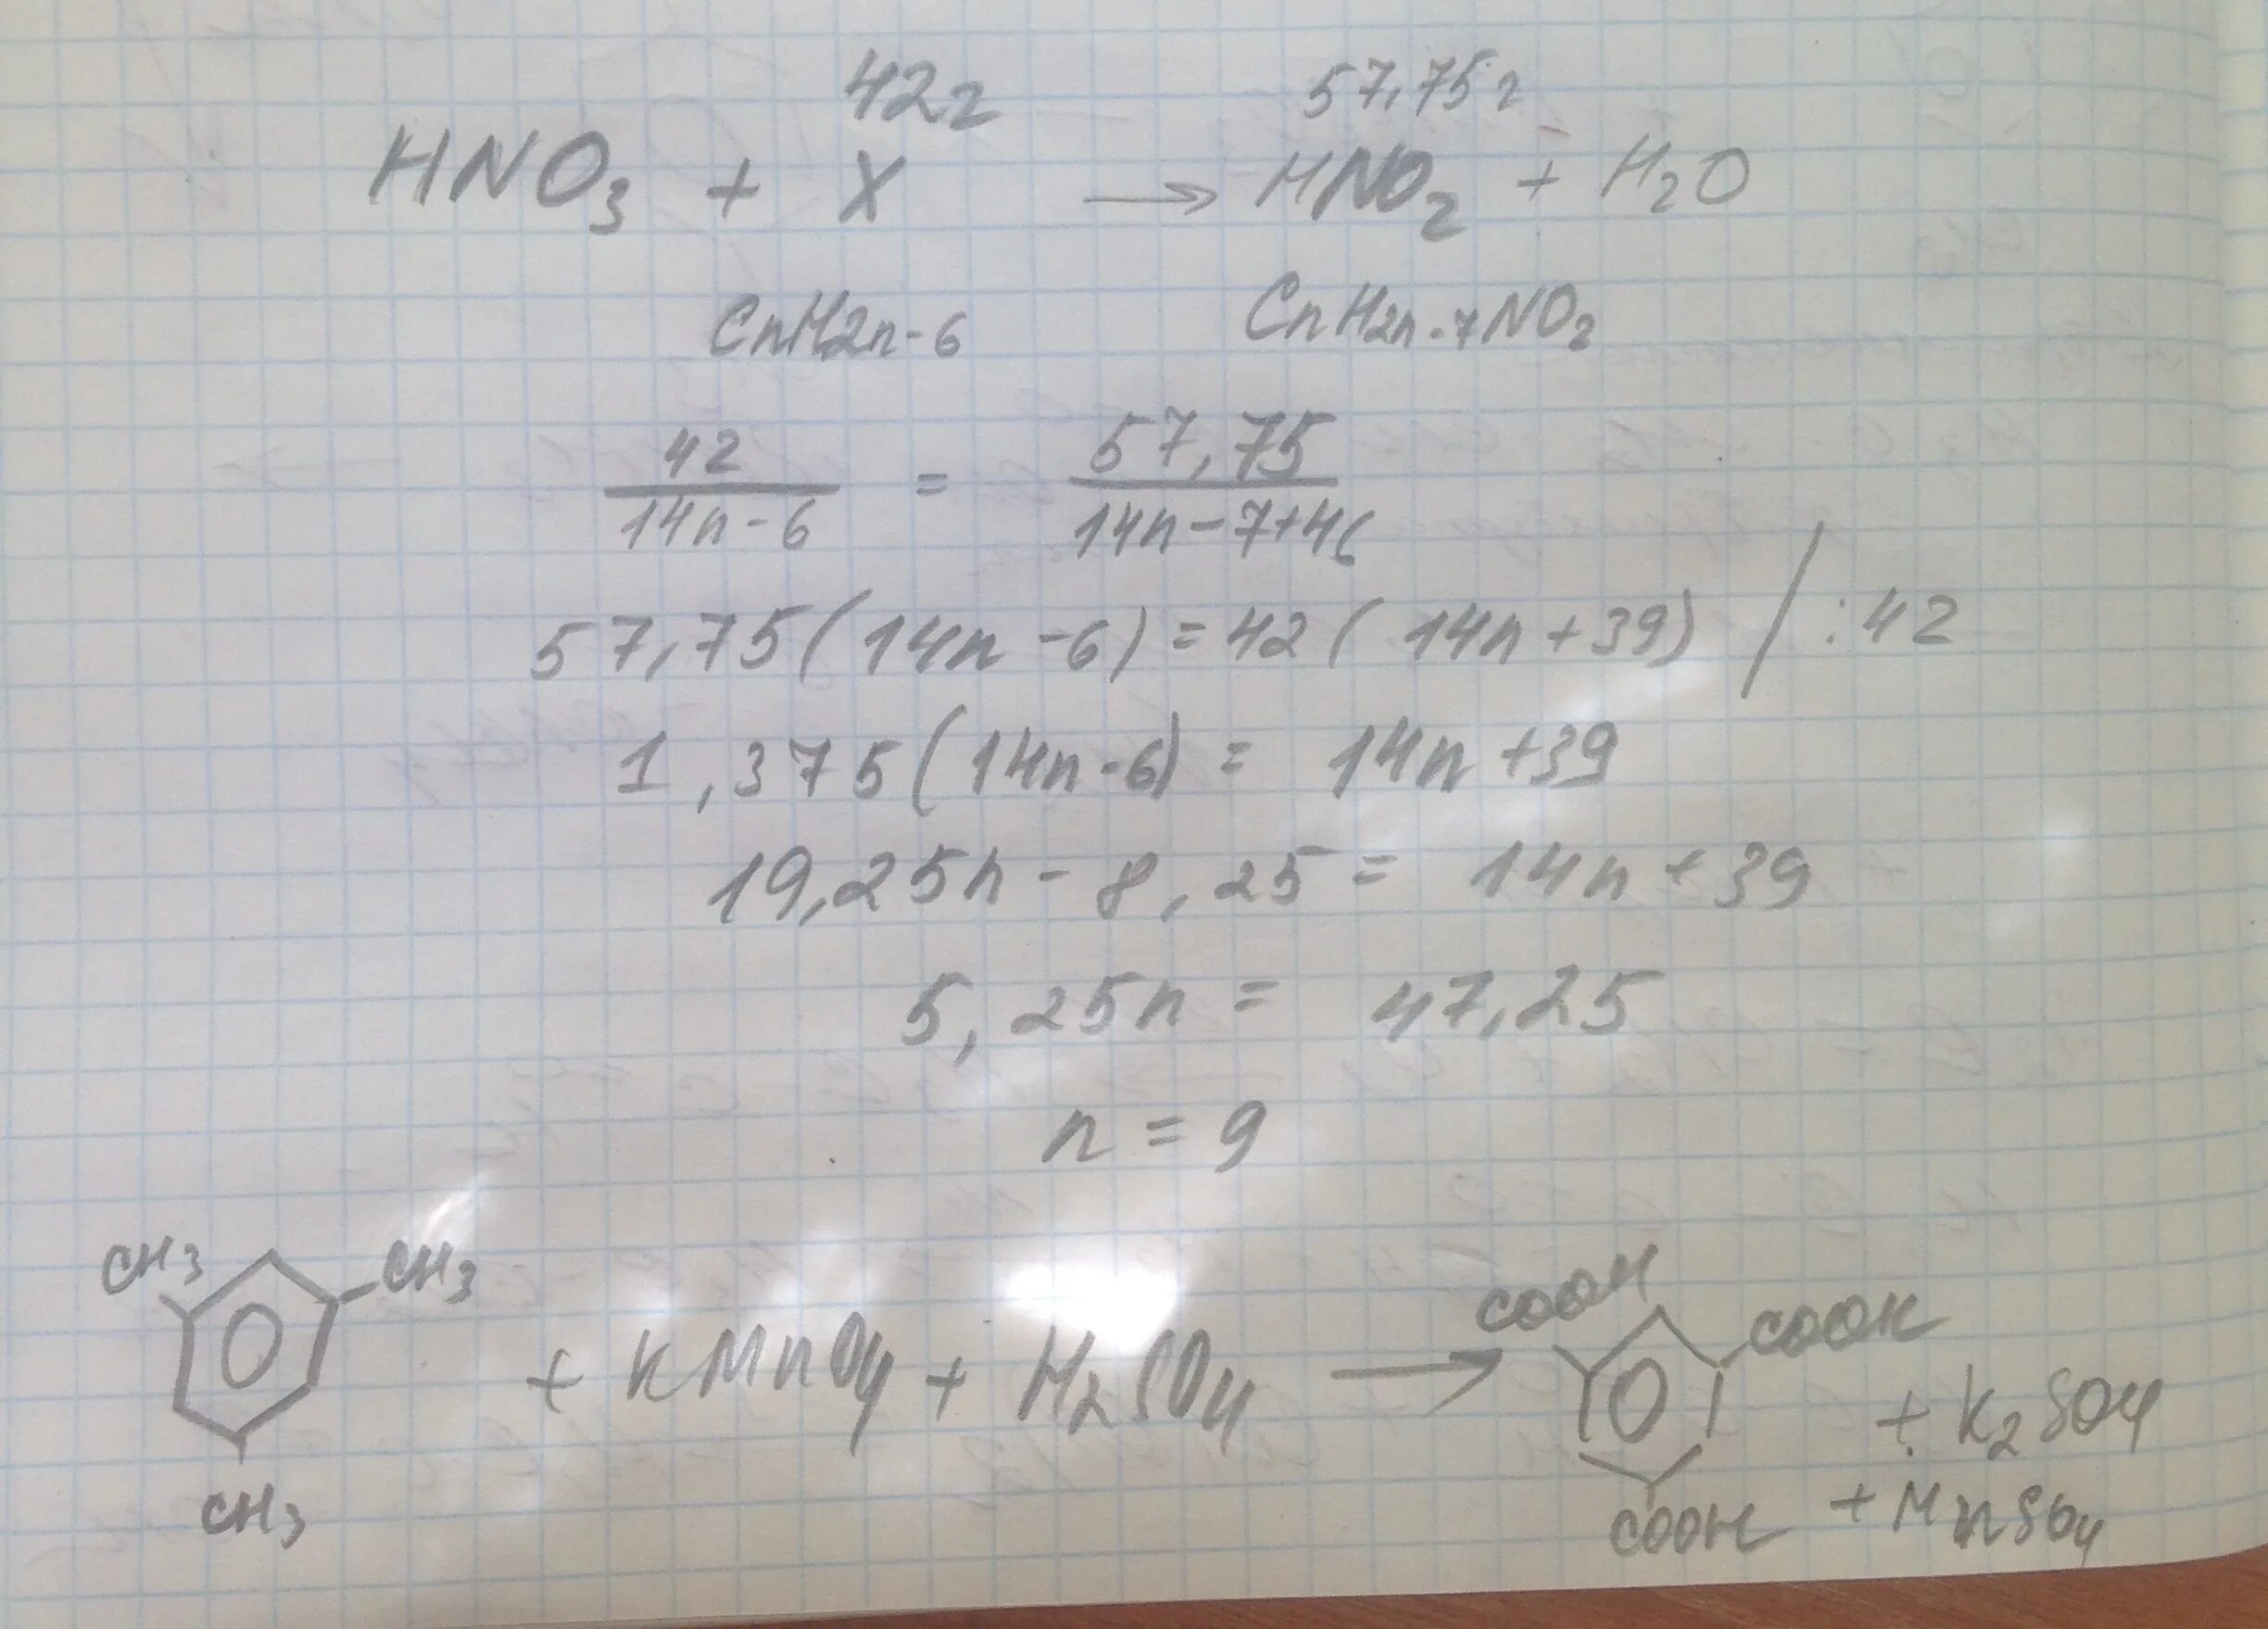 42г 57,75г
HNO3 + X → HNO2 + H2O
CnH2n-6 CnH2n-7NO2
42 / 14n-6 = 57,75 / 14n-7+46
57,75(14n-6)=42(14n+39) / :42
1,375(14n-6) = 14n+39
19,25n - 8,25 = 14n+39
5,25n = 47,25
n = 9
CH3 CH3 COOH COOH
+ KMnO4 + H2SO4 → + K2SO4
CH3 COOH + MnSO4